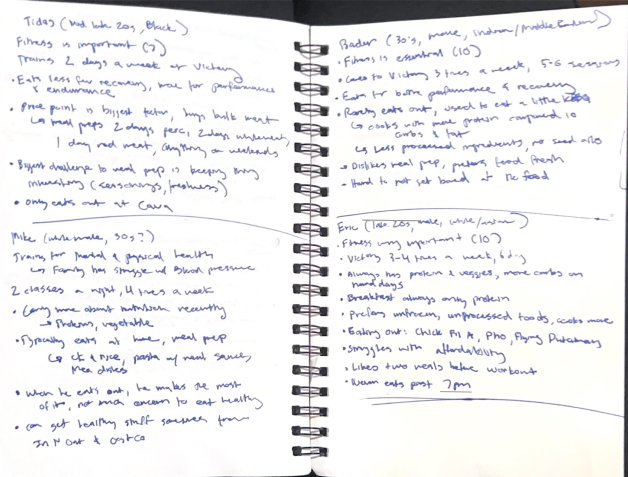 Tidas (Mid late 20s, Black)
Fitness is important (7)
Trains 2 days a week at Victory
• Eats less for recovery, more for performance
& endurance
• Price point is biggest factor, buys bulk meat
↳ meal preps 2 days
1 day red meat, anything on weekends
• Biggest challenge to meal prep is keeping things
interesting (seasonings, freshness)
• only eats out at Cava
Mike (white male, 30s?)
Trains for mental & physical health
↳ Family has struggle w/ Blood pressure
2 classes a night, 4 times a week
• Caring more about nutrition recently
→ Proteins, vegetables
• Typically eats at home, meal prep
↳ & rice, pasta w/ meat sauce,
• When he eats out, he makes the most
of it, not much concern to eat healthy
• Can get healthy stuff sometimes from
In N Out & Costco
Bader (30's, male, Indian/Middle Eastern)
• Fitness is essential (10)
• Comes to Victory 3 times a week, 5-6 sessions
• Eats for both performance & recovery
• Rarely eats out, used to eat a little
↳ cooks with more protein compared to
carbs & fat
↳ Less processed ingredients, no seed oils
- Dislikes meal prep, prefers food fresh
- Hard to not get bored of the food
Eric (late 20s, male, white/)
• Fitness very important (10)
• Victory 3-4 times a week, 6 dy
• Always has protein & veggies, more carbs on
hard days
• Breakfast always only protein
• Prefers unfrozen, unprocessed foods, cooks more
• Eating out: Chick Fil A, Pho, Flying Dutchman
• Struggles with affordability
• Likes two meals before workout
• Never eats post 7pm